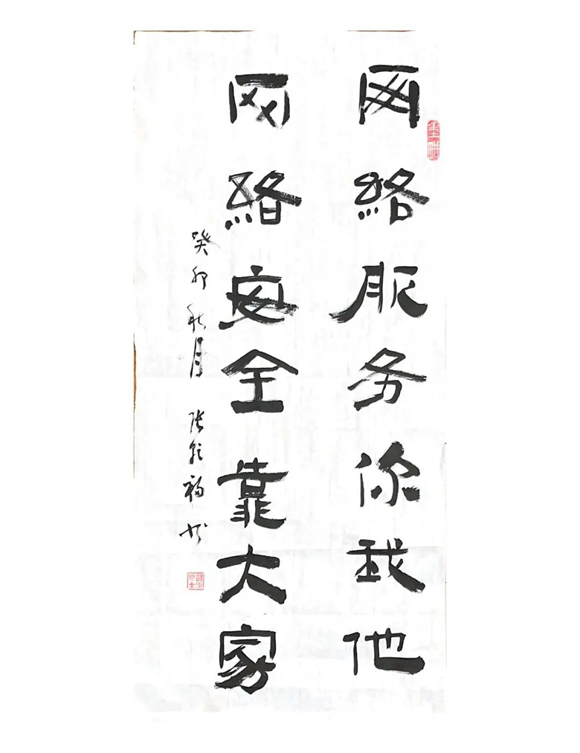 网络服务你我他
网络安全靠大家
癸卯秋月